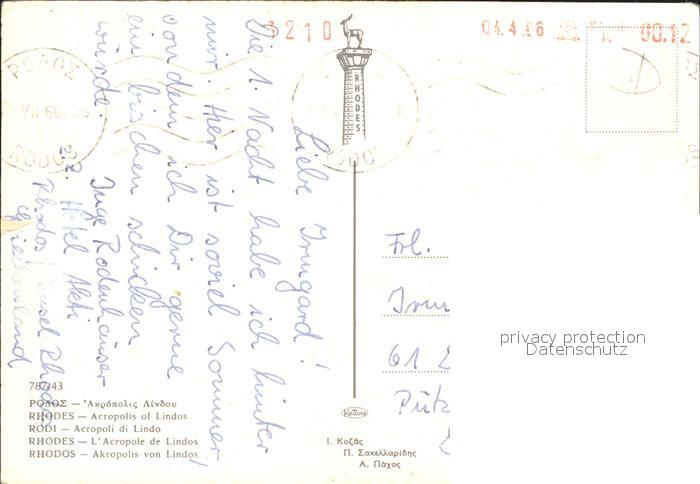 Liebe Irmgard!
Die 1. Nacht habe ich hinter
mir. Hier ist soviel Sommer,
von dem ich Dir gerne
ein bischen schicken
würde.
Inge Rodenhäuser
z.Z. Hotel Akti
Rhodos Insel Rhodos
Griechenland
Frl.
61
787/43
ΡΟΔΟΣ — Ἀκρόπολις Λίνδου
RHODES — Acropolis of Lindos
RODI — Acropoli di Lindo
RHODES — L'Acropole de Lindos
RHODOS — Akropolis von Lindos
RHODES
Ι. Κοζᾶς
Π. Σακελλαρίδης
Α. Πάχος
04.4.66
00.12
ΡΟΔΟΣ
RODOS
privacy protection
Datenschutz